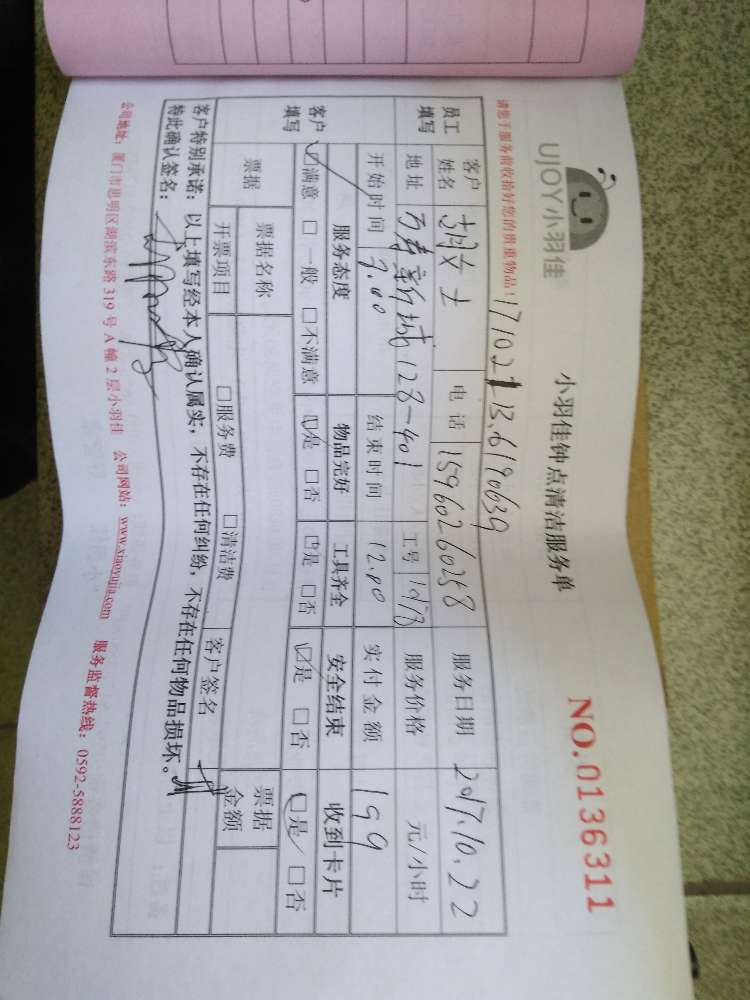 UJOY小羽佳
小羽佳钟点清洁服务单
NO.0136311
请您于服务前收拾好您的贵重物品！
员工填写
客户姓名 胡女士 电话 15960260258 服务日期 2017.10.22
地址 万寿新城128-401 工号 服务价格 元/小时
开始时间 9.00 结束时间 12.00 实付金额 199
客户填写
服务态度 物品完好 工具齐全 安全结束 收到卡片
☑满意 □一般 □不满意 ☑是 □否 ☑是 □否 ☑是 □否 ☑是 □否
票据
票据名称 票据金额
开票项目 □服务费 □清洁费 客户签名
客户特别承诺：以上填写经本人确认属实，不存在任何纠纷，不存在任何物品损坏。
特此确认签名：
公司地址：厦门市思明区湖滨东路319号A幢2层小羽佳 公司网站：www.xiaoyujia.com 服务监督热线：0592-5888123